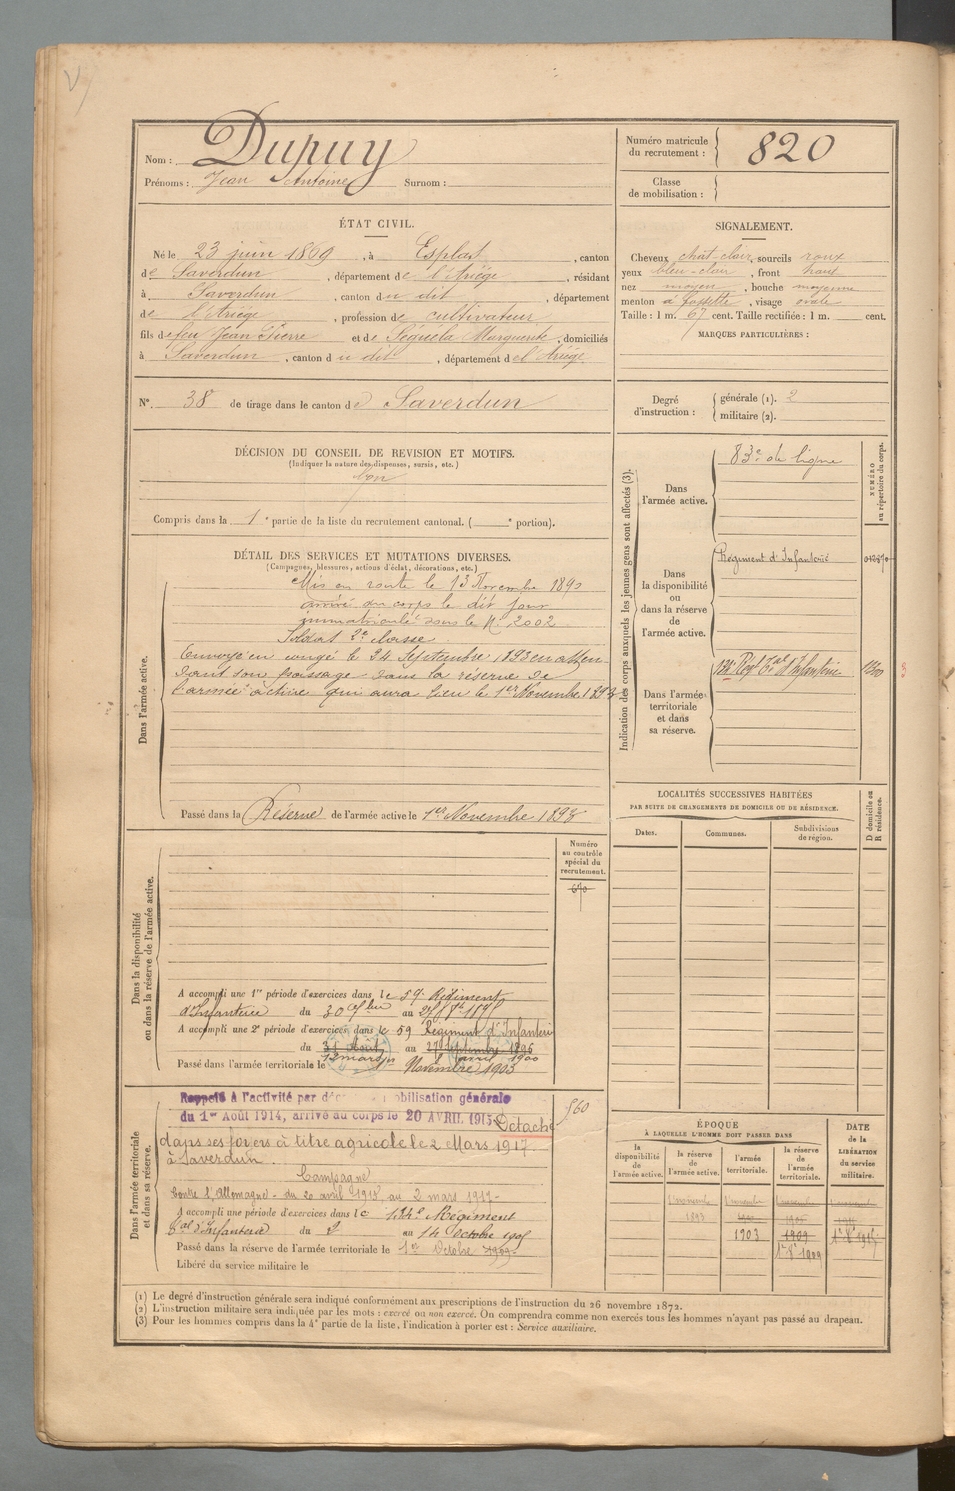 Nom : Dupuy
Prénoms : Jean Antoine Surnom :
Numéro matricule du recrutement : 820
Classe de mobilisation :
ÉTAT CIVIL.
Né le 23 juin 1869, à Esplas, canton
de Saverdun, département de l'Ariège, résidant
à Saverdun, canton du dit, département
de l'Ariège, profession de cultivateur
fils de feu Jean Pierre et de Séguéla Marguerite, domiciliés
à Saverdun, canton du dit, département de l'Ariège
SIGNALEMENT.
Cheveux chat-clair, sourcils roux
yeux bleu-clair, front haut
nez moyen, bouche moyenne
menton à fossette, visage ovale
Taille : 1 m. 67 cent. Taille rectifiée : 1 m. cent.
MARQUES PARTICULIÈRES :
N° 38 de tirage dans le canton de Saverdun
Degré d'instruction : générale (1). 2
militaire (2).
DÉCISION DU CONSEIL DE REVISION ET MOTIFS.
(Indiquer la nature des dispenses, sursis, etc.)
bon
Compris dans la 1e partie de la liste du recrutement cantonal. (e portion).
DÉTAIL DES SERVICES ET MUTATIONS DIVERSES.
(Campagnes, blessures, actions d'éclat, décorations, etc.)
Dans l'armée active.
Mis en route le 13 Novembre 1890
arrivé au corps le dit jour
immatriculé sous le N° 2002
Soldat 2e classe.
Envoyé en congé le 24 Septembre 1893 en atten-
dant son passage dans la réserve de
l'armée active qui aura lieu le 1er Novembre 1893
Passé dans la Réserve de l'armée active le 1er Novembre 1893
Indication des corps auxquels les jeunes gens sont affectés (3).
NUMÉRO au répertoire du corps.
Dans l'armée active.
83e de ligne
Dans la disponibilité ou dans la réserve de l'armée active.
Régiment d'Infanterie
Dans l'armée territoriale et dans sa réserve.
Regt Tal d'Infanterie
LOCALITÉS SUCCESSIVES HABITÉES
PAR SUITE DE CHANGEMENTS DE DOMICILE OU DE RÉSIDENCE.
Dates.
Communes.
Subdivisions de région.
D domicile ou R résidence.
Dans la disponibilité ou dans la réserve de l'armée active.
Numéro au contrôle spécial du recrutement.
A accompli une 1re période d'exercices dans le 59e Régiment
d'Infanterie du 30 au
A accompli une 2e période d'exercices dans le 59 Régiment d'Infanterie
du 31 Août au 27 Septembre 1896
12 mars avril 1900
Passé dans l'armée territoriale le Novembre 1903
Dans l'armée territoriale et dans sa réserve.
Rappelé à l'activité par mobilisation générale
du 1er Août 1914, arrivé au corps le 20 AVRIL 1915 Détaché
dans ses foyers à titre agricole le 2 Mars 1917
à Saverdun.
560
Campagne
Contre l'Allemagne - du 20 avril 1915 au 2 mars 1917 -
A accompli une période d'exercices dans le 134e Régiment
Tal d'Infanterie du 2 au 14 Octobre 1905
Passé dans la réserve de l'armée territoriale le 1er Octobre 1909
Libéré du service militaire le
ÉPOQUE
À LAQUELLE L'HOMME DOIT PASSER DANS
la disponibilité de l'armée active.
la réserve de l'armée active.
l'armée territoriale.
la réserve de l'armée territoriale.
DATE de la LIBÉRATION du service militaire.
1893
1903
1909
1er 8bre 1909
(1) Le degré d'instruction générale sera indiqué conformément aux prescriptions de l'instruction du 26 novembre 1872.
(2) L'instruction militaire sera indiquée par les mots : exercé ou non exercé. On comprendra comme non exercés tous les hommes n'ayant pas passé au drapeau.
(3) Pour les hommes compris dans la 4e partie de la liste, l'indication à porter est : Service auxiliaire.